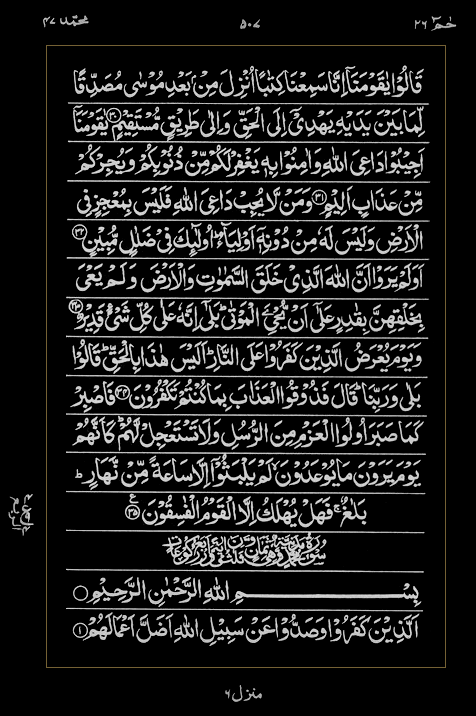 حٰمٓ ٢٦ ٥٠٧ محمّد ٤٧
قَالُوْا یٰقَوْمَنَاۤ اِنَّا سَمِعْنَا كِتٰبًا اُنْزِلَ مِنْۢ بَعْدِ مُوْسٰى مُصَدِّقًا
لِّمَا بَیْنَ یَدَیْهِ یَهْدِیْۤ اِلَى الْحَقِّ وَ اِلٰى طَرِیْقٍ مُّسْتَقِیْمٍ ﴿٣٠﴾ یٰقَوْمَنَاۤ
اَجِیْبُوْا دَاعِیَ اللّٰهِ وَ اٰمِنُوْا بِهٖ یَغْفِرْ لَكُمْ مِّنْ ذُنُوْبِكُمْ وَ یُجِرْكُمْ
مِّنْ عَذَابٍ اَلِیْمٍ ﴿٣١﴾ وَ مَنْ لَّا یُجِبْ دَاعِیَ اللّٰهِ فَلَیْسَ بِمُعْجِزٍ فِی
الْاَرْضِ وَ لَیْسَ لَهٗ مِنْ دُوْنِهٖۤ اَوْلِیَآءُ ؕ اُولٰٓىِٕكَ فِیْ ضَلٰلٍ مُّبِیْنٍ ﴿٣٢﴾
اَوَ لَمْ یَرَوْا اَنَّ اللّٰهَ الَّذِیْ خَلَقَ السَّمٰوٰتِ وَ الْاَرْضَ وَ لَمْ یَعْیَ
بِخَلْقِهِنَّ بِقٰدِرٍ عَلٰۤى اَنْ یُّحْیِۧ الْمَوْتٰى ؕ بَلٰۤى اِنَّهٗ عَلٰى كُلِّ شَیْءٍ قَدِیْرٌ ﴿٣٣﴾
وَ یَوْمَ یُعْرَضُ الَّذِیْنَ كَفَرُوْا عَلَى النَّارِ ؕ اَلَیْسَ هٰذَا بِالْحَقِّ ؕ قَالُوْا
بَلٰى وَ رَبِّنَا ؕ قَالَ فَذُوْقُوا الْعَذَابَ بِمَا كُنْتُمْ تَكْفُرُوْنَ ﴿٣٤﴾ فَاصْبِرْ
كَمَا صَبَرَ اُولُوا الْعَزْمِ مِنَ الرُّسُلِ وَ لَا تَسْتَعْجِلْ لَّهُمْ ؕ كَاَنَّهُمْ
یَوْمَ یَرَوْنَ مَا یُوْعَدُوْنَ ۙ لَمْ یَلْبَثُوْۤا اِلَّا سَاعَةً مِّنْ نَّهَارٍ ؕ
بَلٰغٌ ۚ فَهَلْ یُهْلَكُ اِلَّا الْقَوْمُ الْفٰسِقُوْنَ ﴿٣٥﴾ ع
بِسْمِ اللّٰهِ الرَّحْمٰنِ الرَّحِیْمِ
اَلَّذِیْنَ كَفَرُوْا وَ صَدُّوْا عَنْ سَبِیْلِ اللّٰهِ اَضَلَّ اَعْمَالَهُمْ ﴿١﴾
منزل ٦